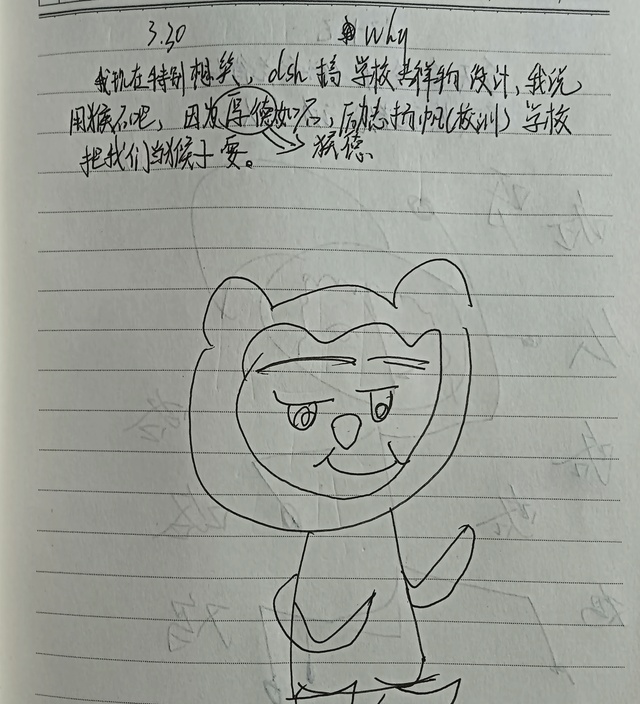 3.30 why
我现在特别想笑,dsh搞学校吉祥物设计,我说
用猴子吧,因为厚德如石,励志扬帆(校训)学校
把我们当猴子耍。→猴德